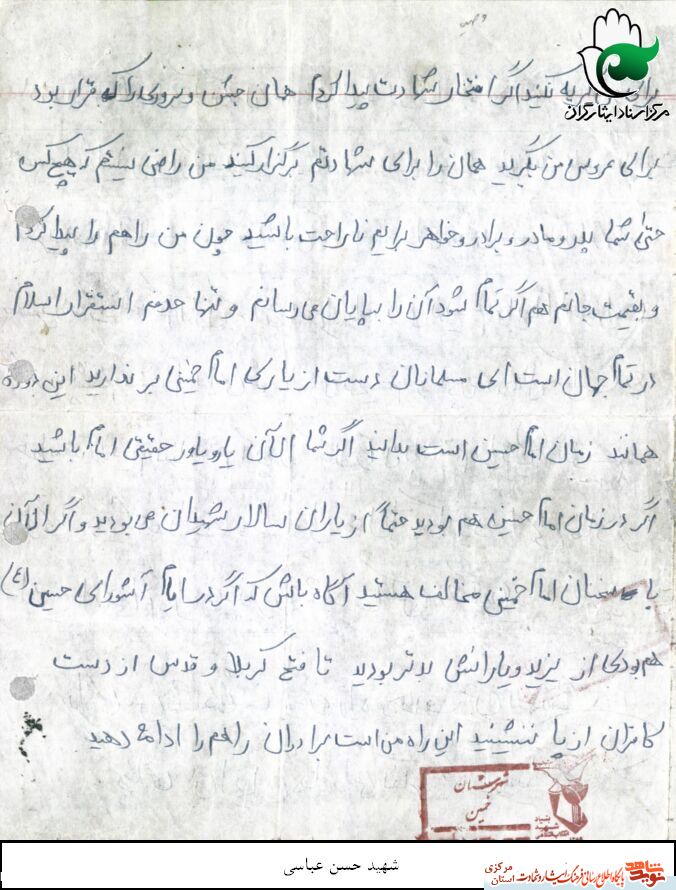 وصیت
مرکز اسناد ایثارگران
برای من گریه نکنید اگر افتخار شهادت پیدا کردم همان جشن و سروری را که قرار بود
برای عروسی من بگیرید همان را برای شهادتم برگزار کنید من راضی نیستم که هیچ کس
حتی شما پدر و مادر و برادر و خواهر برایم ناراحت باشید چون من راهم را پیدا کردم
و بقیمت جانم هم اگر تمام شود آن را بپایان می رسانم و تنها هدفم استقرار اسلام
در تمام جهان است ای مسلمانان دست از یاری امام خمینی بر ندارید این دوره
همانند زمان امام حسین است بدانید اگر شما الآن یار و یاور حقیقی امام باشید
اگر در زمان امام حسین هم بودید حتماً از یاران سالار شهیدان می بودید و اگر الآن
با سخنان امام خمینی مخالف هستید آگاه باش که اگر در ایام آشورای حسین (ع)
هم بودی از یزید و یارانش بدتر بودید تا فتح کربلا و قدس از دست
کافران از پا ننشینید این راه من است برادران راهم را ادامه دهید
شهرستان
خمین
بنیاد
شهید
شهید حسن عباسی
نوید شاهد
پایگاه اطلاع رسانی فرهنگ ایثار و شهادت استان مرکزی